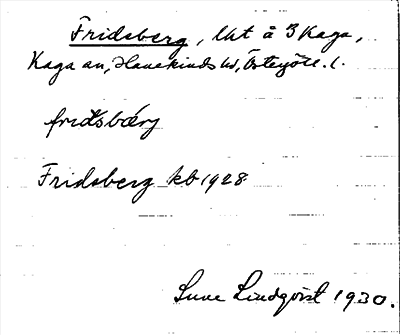 Fridsberg, lht å 3 Kaga,
Kaga sn, Hanekinds hd, Östergötl. l.
fridsbärj
Fridsberg kb 1928
Sune Lindqvist 1930.